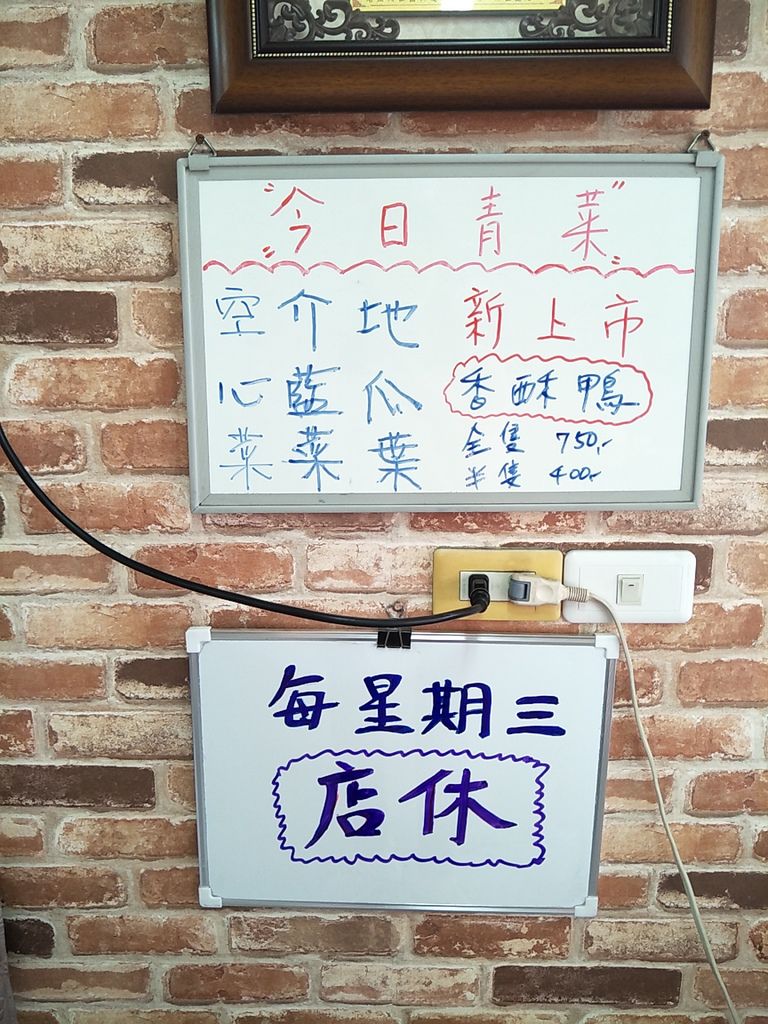 "今日青菜"
空心菜
介藍菜
地瓜葉
新上市
香酥鴨
全隻 750,-
半隻 400,-
每星期三
店休